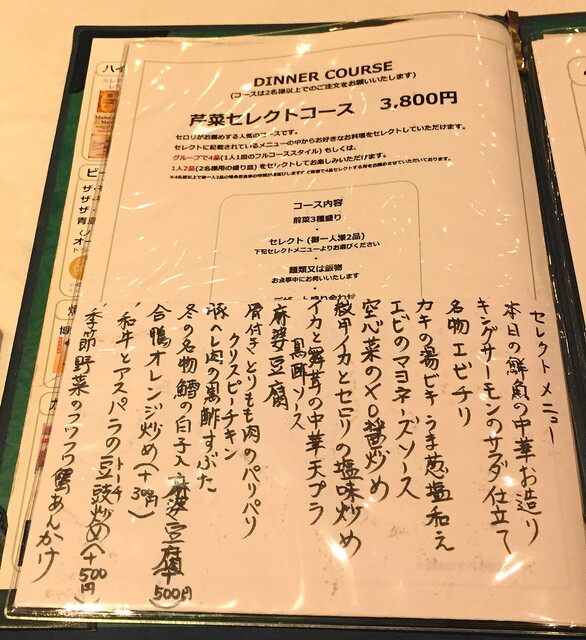 DINNER COURSE
(コースは2名様以上でのご注文をお願いいたします)
芹菜セレクトコース 3,800円
セロリがお薦めする人気のコースです。
セレクトに記載されているメニューの中からお好きなお料理をセレクトしていただけます。
グループで4品(1人1皿のフルコーススタイル)もしくは、
1人2品(2名様用の盛り皿)をセレクトしてお楽しみいただけます。
コース内容
前菜3種盛り
・
セレクト(御一人様2品)
下記セレクトメニューよりお選びください
・
麺類又は飯物
お食事中にお伺いいたします
・
セレクトメニュー
本日の鮮魚の中華お造り
キングサーモンのサラダ仕立て
名物エビチリ
カキの湯ビキうま葱塩和え
エビのマヨネーズソース
空心菜のXO醤炒め
紋甲イカとセロリの塩味炒め
イカと舞茸の中華天プラ
黒酢ソース
麻婆豆腐
骨付きとりもも肉のパリパリ
クリスピーチキン
豚ヘレ肉の黒酢すぶた
冬の名物鱈の白子入麻婆豆腐(+500円)
合鴨オレンジ炒め(+300円)
和牛とアスパラの豆豉炒め(+500円)
トーチ
季節野菜のフワフワ蟹あんかけ